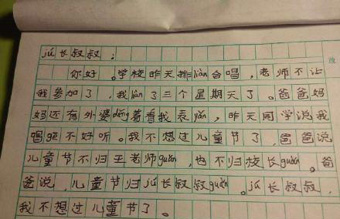 瓜长叔叔：
你好。学校昨天排liàn合唱，老师不让
我参加了，我liàn了三个星期天了。爸爸妈
妈还有外婆děng着看我表演，昨天同学说我
唱歌不好听。我不想过儿童节了，爸爸说
儿童节不归王老师guǎn，也不归校长guǎn。爸
爸说，儿童节归瓜长叔叔guǎn。瓜长叔叔，
我不想过儿童节了。